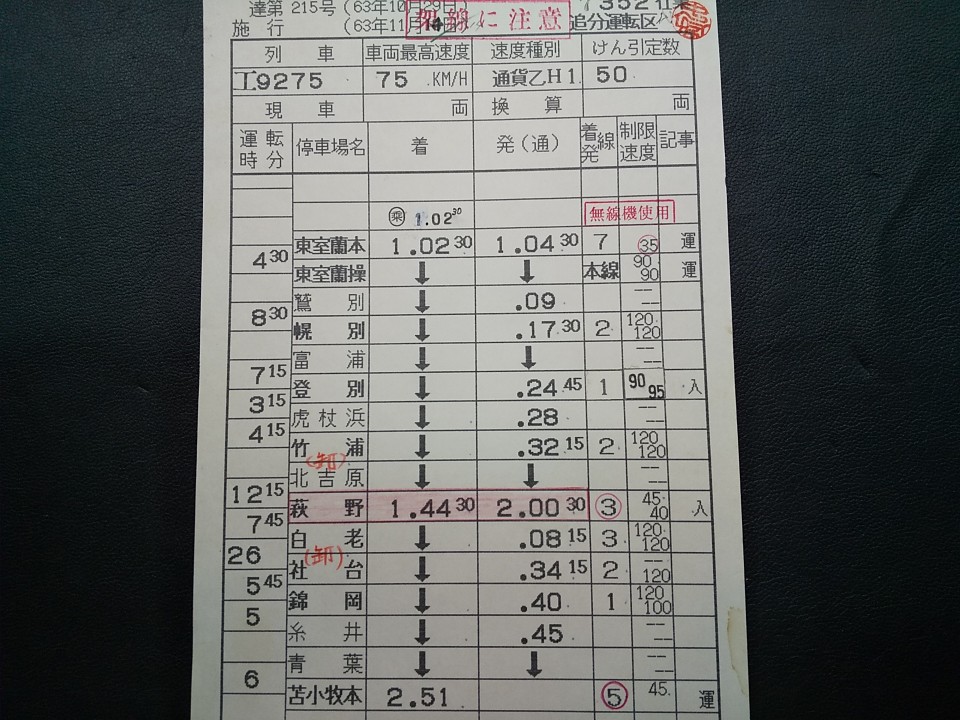 達第 215号 (63年10月29日) 7352仕業
施行 (63年11月14日) 架線に注意 追分運転区
列車 車両最高速度 速度種別 けん引定数
工9275 75 KM/H 通貨乙H1 50
現車 両 換算 両
運転時分 停車場名 着 発(通) 着発線 制限速度 記事
乗 1.02 30 無線機使用
東室蘭本 1.02 30 1.04 30 7 35 運
4 30
東室蘭操 ↓ ↓ 本線 90 90 運
鷲別 ↓ .09 -- --
8 30
幌別 ↓ .17 30 2 120 120
富浦 ↓ ↓ -- --
7 15
登別 ↓ .24 45 1 90 95 入
3 15
虎杖浜 ↓ .28 -- --
4 15
竹浦 ↓ .32 15 2 120 120
(卸)
北吉原 ↓ ↓ -- --
12 15
萩野 1.44 30 2.00 30 3 45 40 入
7 45
白老 ↓ .08 15 3 120 120
26 (卸)
社台 ↓ .34 15 2 -- 120
5 45
錦岡 ↓ .40 1 120 100
5
糸井 ↓ .45 -- --
青葉 ↓ ↓ -- --
6
苫小牧本 2.51 5 45 運